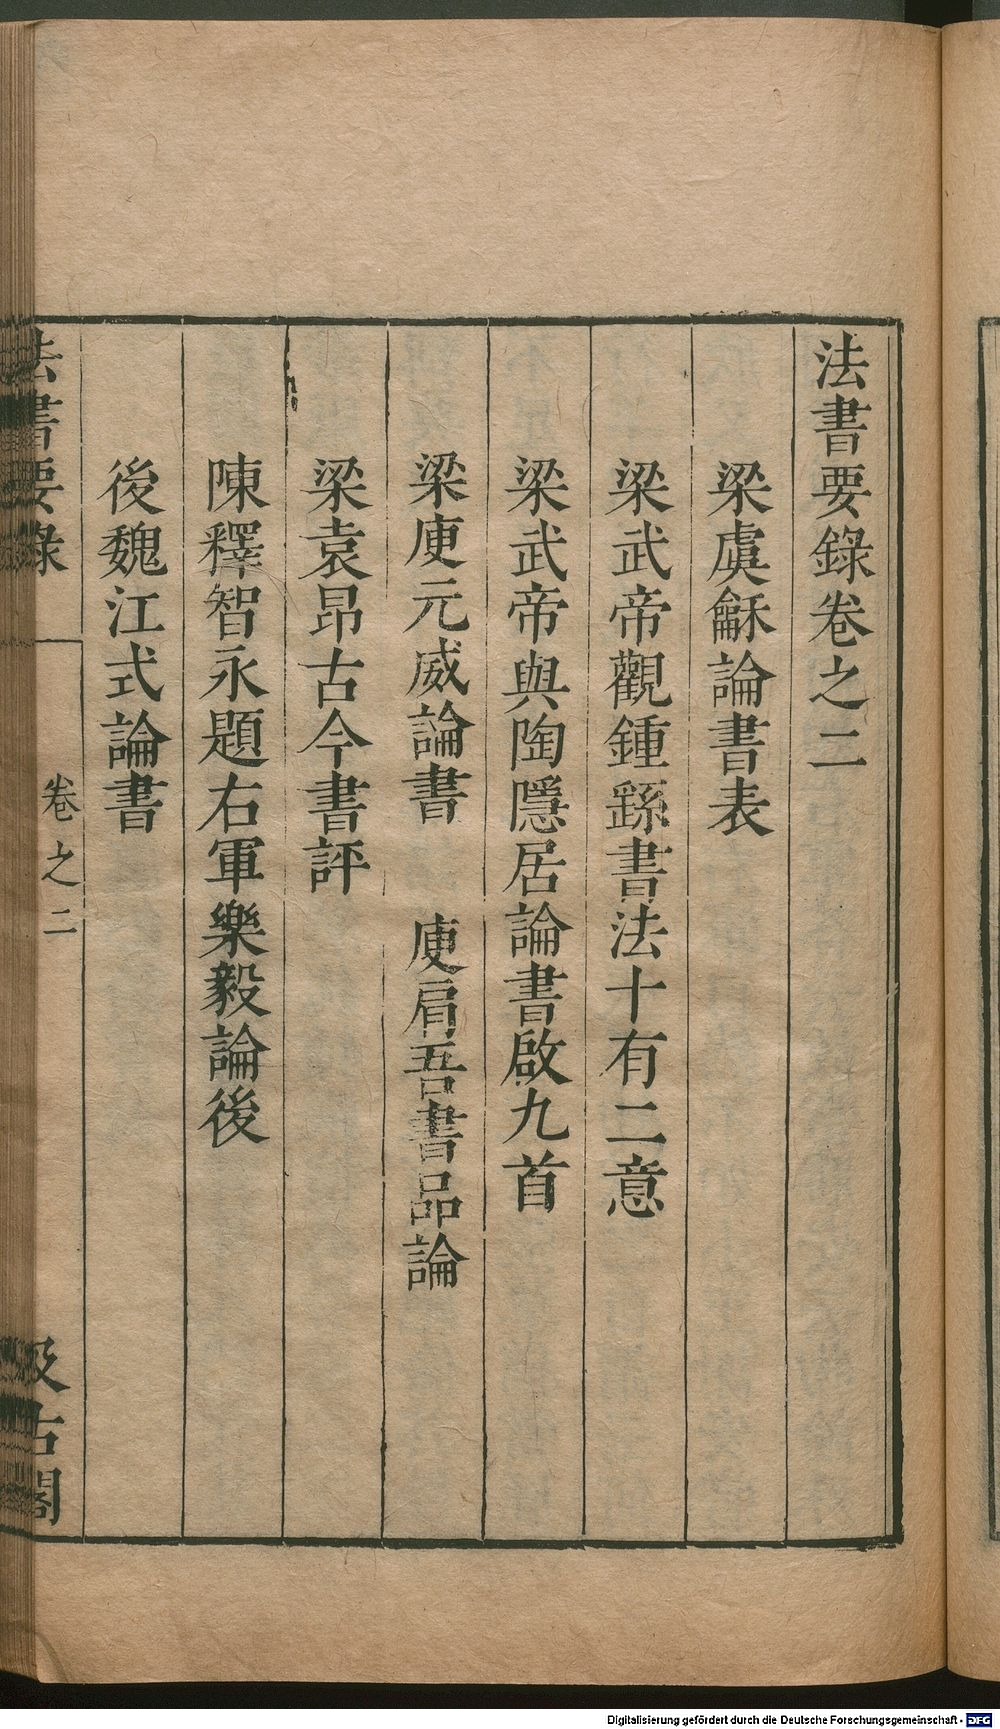 法書要錄卷之二
梁虞龢論書表
梁武帝觀鍾繇書法十有二意
梁武帝與陶隱居論書啟九首
梁庾元威論書　庾肩吾書品論
梁袁昂古今書評
陳釋智永題右軍樂毅論後
後魏江式論書
法書要錄　卷之二　汲古閣
Digitalisierung gefördert durch die Deutsche Forschungsgemeinschaft - DFG